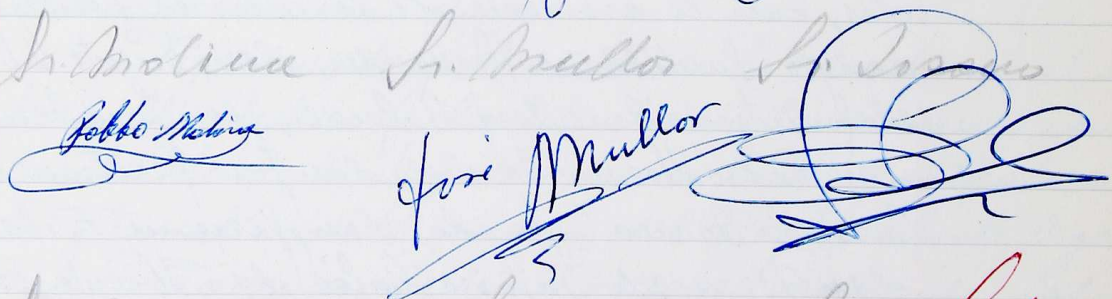 Sr. Molina Sr. Mullor Sr. Lozano
Molina
José Mullor